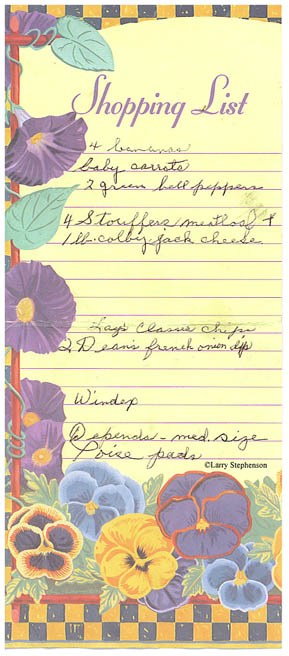 Shopping List
4 bananas
baby carrots
2 green bell peppers
4 Stouffers meatloaf +
1 lb. colby-jack cheese
Lays Classic Chips
2 Dean's french onion dip
Windex
Depends - med. size
Poise pads
©Larry Stephenson